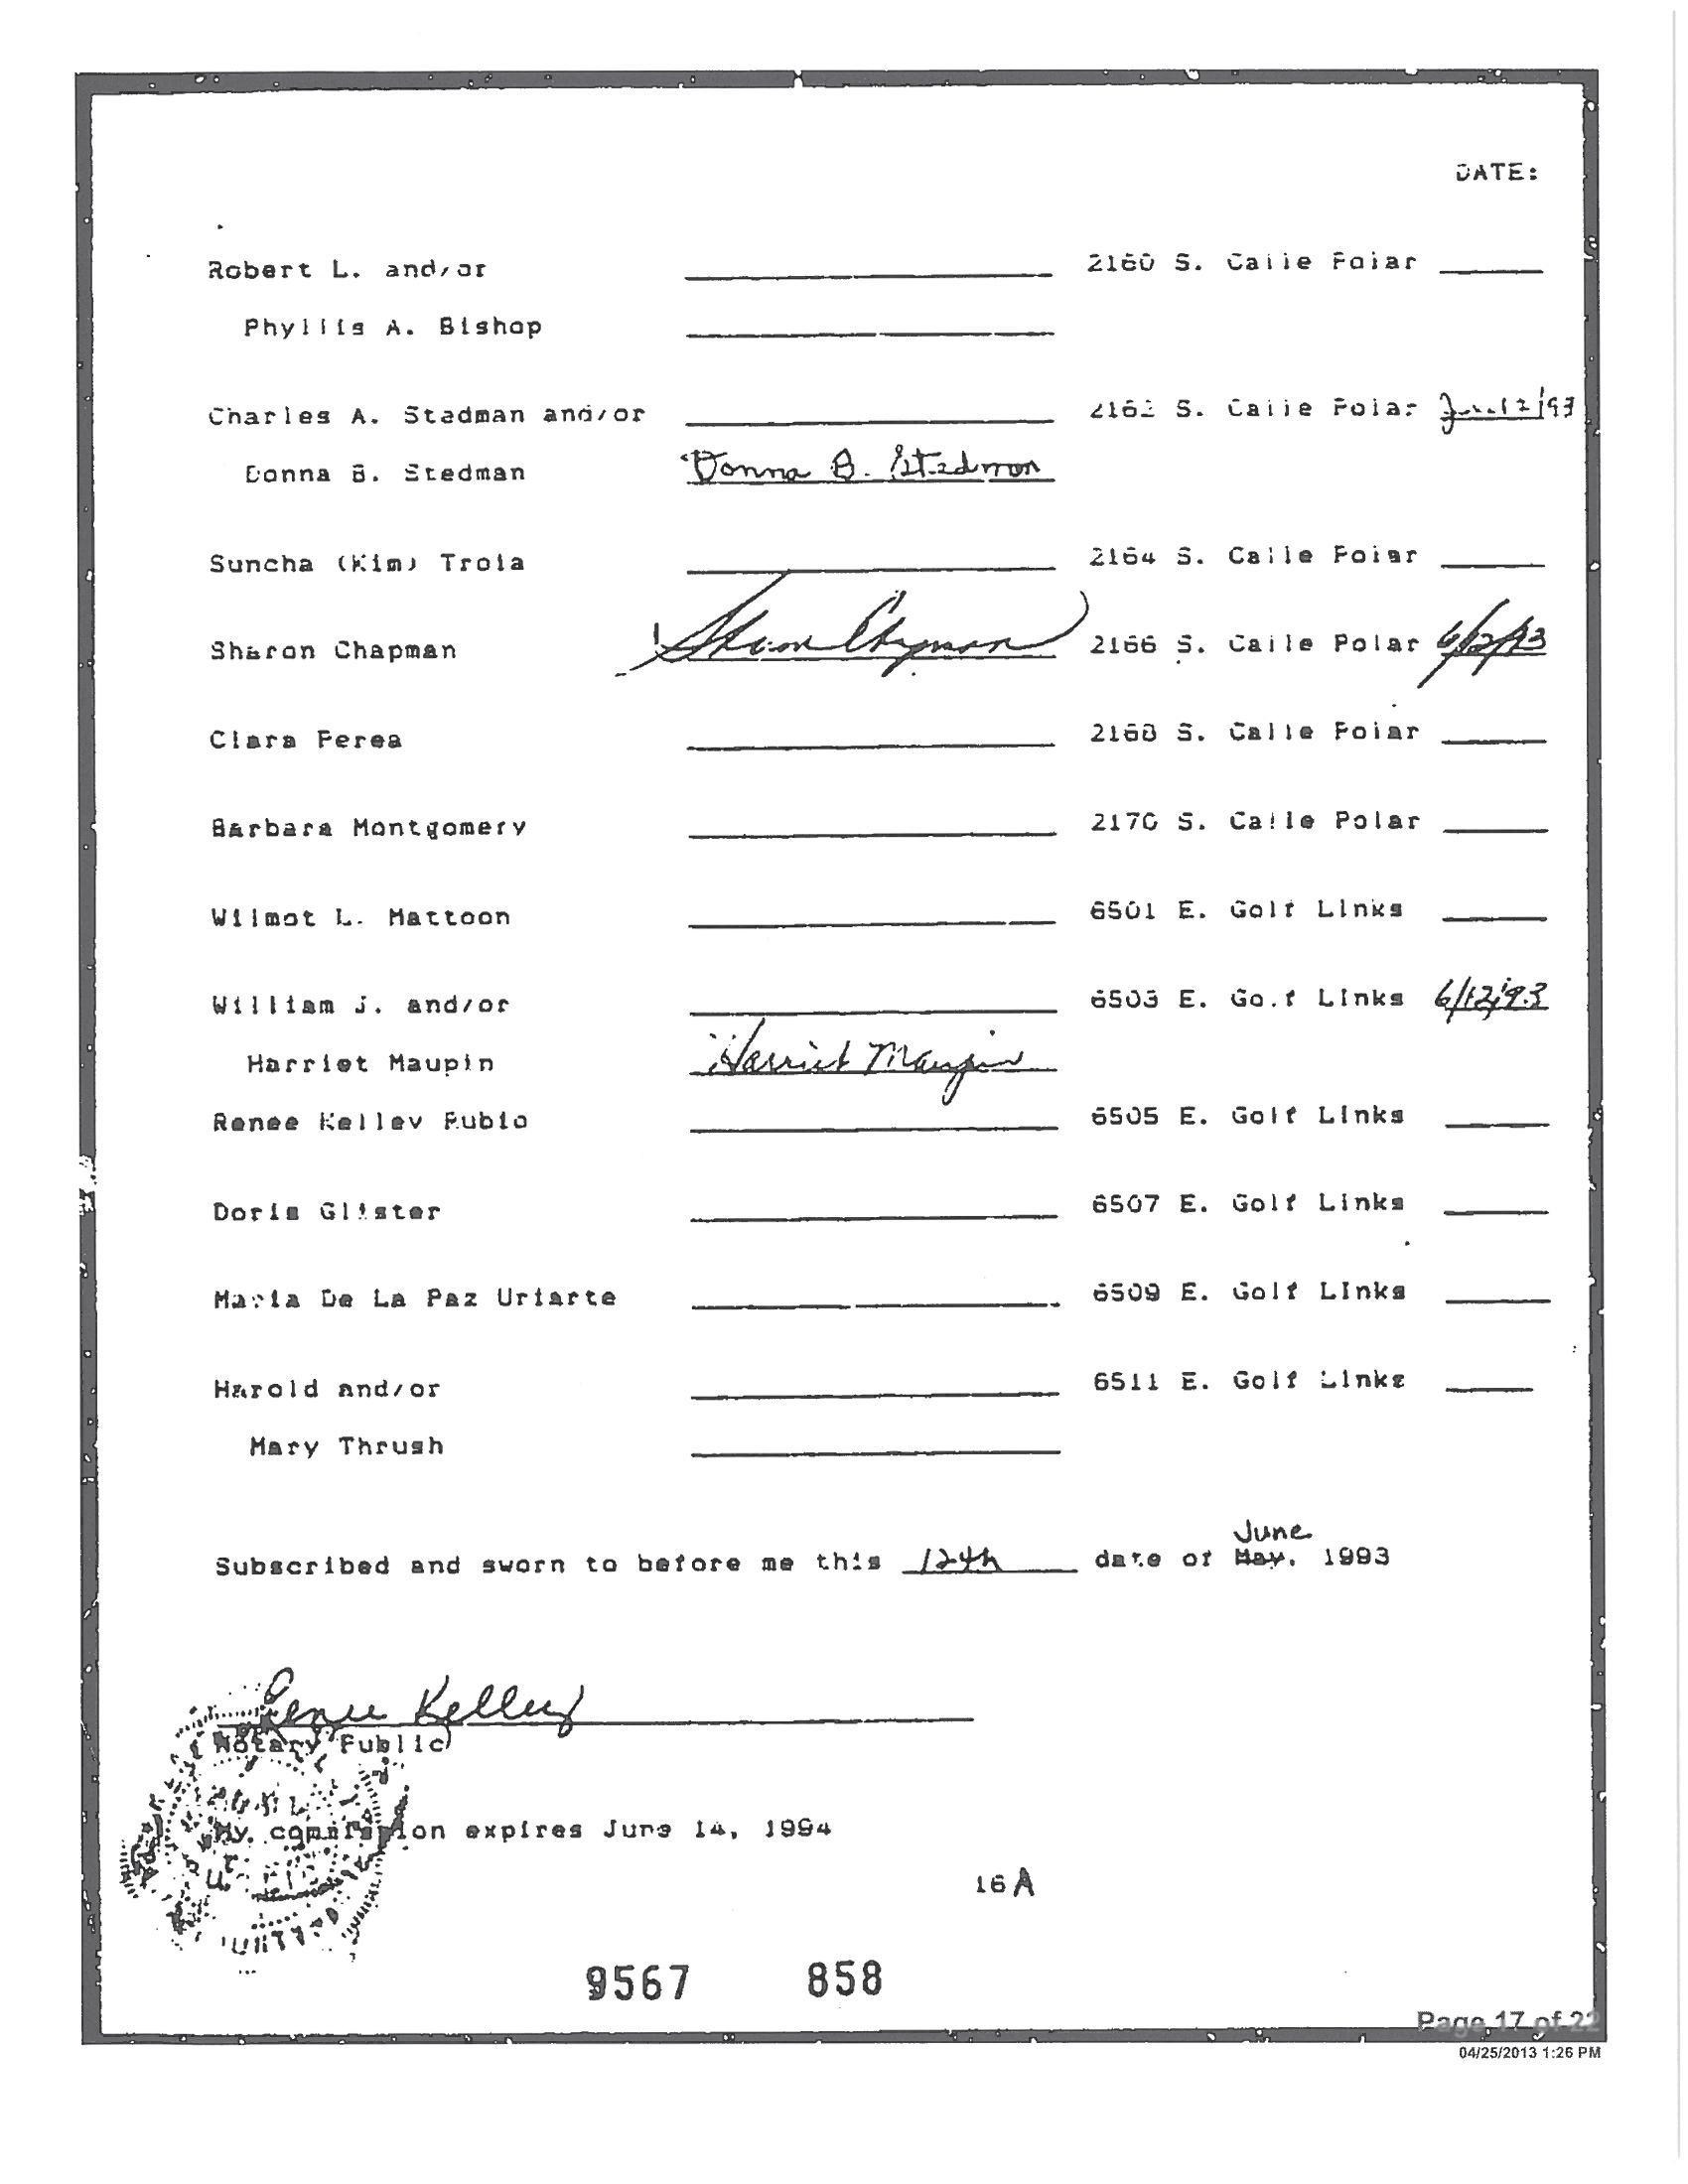 DATE:
Robert L. and/or 2160 S. Calle Polar
Phyllis A. Bishop
Charles A. Stedman and/or 2162 S. Calle Polar June 12/93
Donna B. Stedman Donna B. Stedman
Suncha (Kim) Troia 2164 S. Calle Polar
Sharon Chapman Sharon Chapman 2166 S. Calle Polar 6/12/93
Clara Perea 2168 S. Calle Polar
Barbara Montgomery 2170 S. Calle Polar
Wilmot L. Mattoon 6501 E. Golf Links
William J. and/or 6503 E. Golf Links 6/12/93
Harriet Maupin Harriet Maupin
Renee Kelley Rubio 6505 E. Golf Links
Doris Glister 6507 E. Golf Links
Maria De La Paz Uriarte 6509 E. Golf LInks
Harold and/or 6511 E. Golf Links
Mary Thrush
June
Subscribed and sworn to before me this 12th date of May, 1993
Renee Kelley
Notary Public
My commission expires June 14, 1994
16 A
9567 858
Page 17 of 22
04/25/2013 1:26 PM